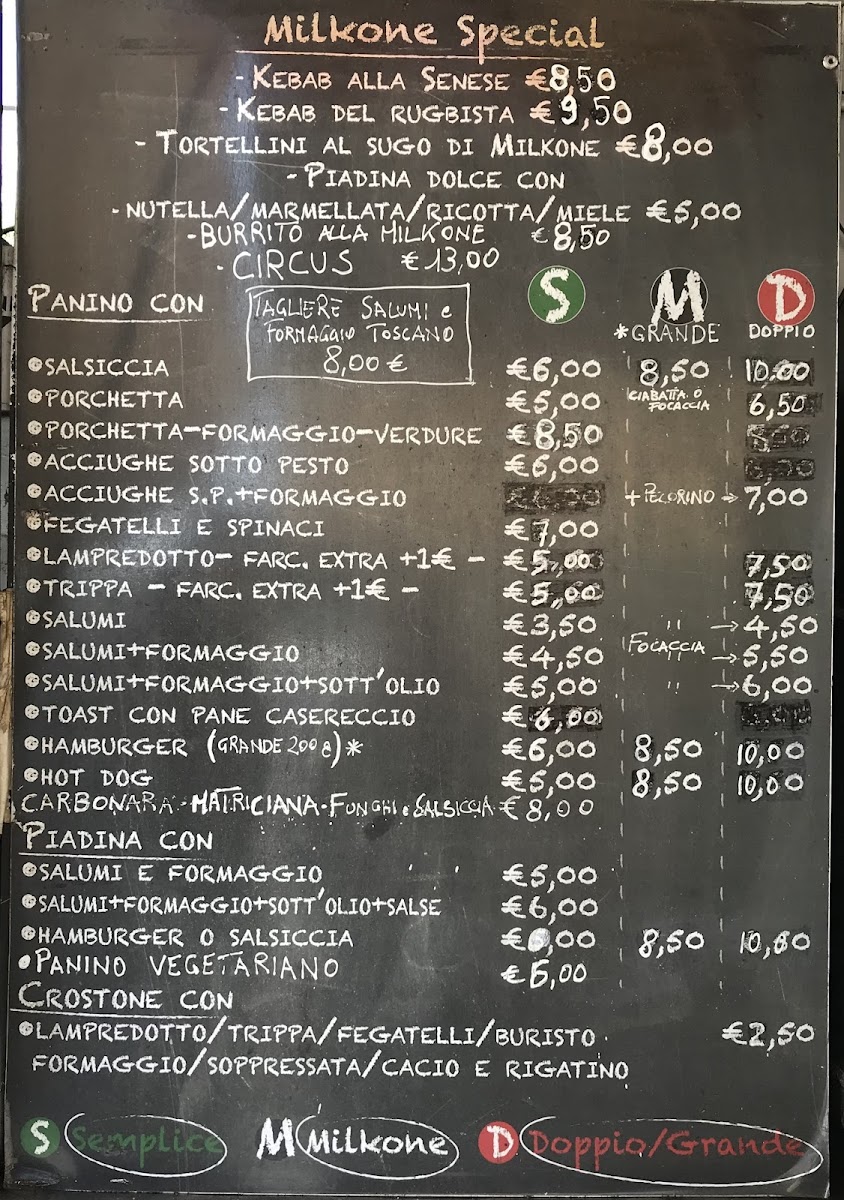 Milkone Special
- Kebab alla Senese €8,50
- Kebab del rugbista €9,50
- Tortellini al sugo di Milkone €8,00
- Piadina dolce con
- nutella/marmellata/ricotta/miele €5,00
- Burrito alla Milkone €8,50
- Circus €13,00
Panino con
Tagliere Salumi e
Formaggio Toscano
8,00 €
S M D
*Grande Doppio
Salsiccia €6,00 8,50 10.00
Porchetta €5,00 Ciabatta o Focaccia 6,50
Porchetta-formaggio-verdure €8,50
Acciughe sotto pesto €6,00
Acciughe s.p.+formaggio + Pecorino → 7,00
Fegatelli e spinaci €7,00
Lampredotto- farc. extra +1€ - €5,00 7,50
Trippa - farc. extra +1€ - €5,00 7,50
Salumi €3,50 " → 4,50
Salumi+formaggio €4,50 Focaccia " → 5,50
Salumi+formaggio+sott'olio €5,00 " → 6,00
Toast con pane casereccio €6,00
Hamburger (grande 200g)* €6,00 8,50 10,00
Hot dog €5,00 8,50 10,00
Carbonara-Matriciana-Funghi e Salsiccia €8,00
Piadina con
Salumi e formaggio €5,00
Salumi+formaggio+sott'olio+salse €6,00
Hamburger o salsiccia 8,50 10,00
Panino vegetariano
Crostone con
Lampredotto/trippa/fegatelli/buristo €2,50
formaggio/soppressata/cacio e rigatino
S Semplice M Milkone D Doppio/Grande